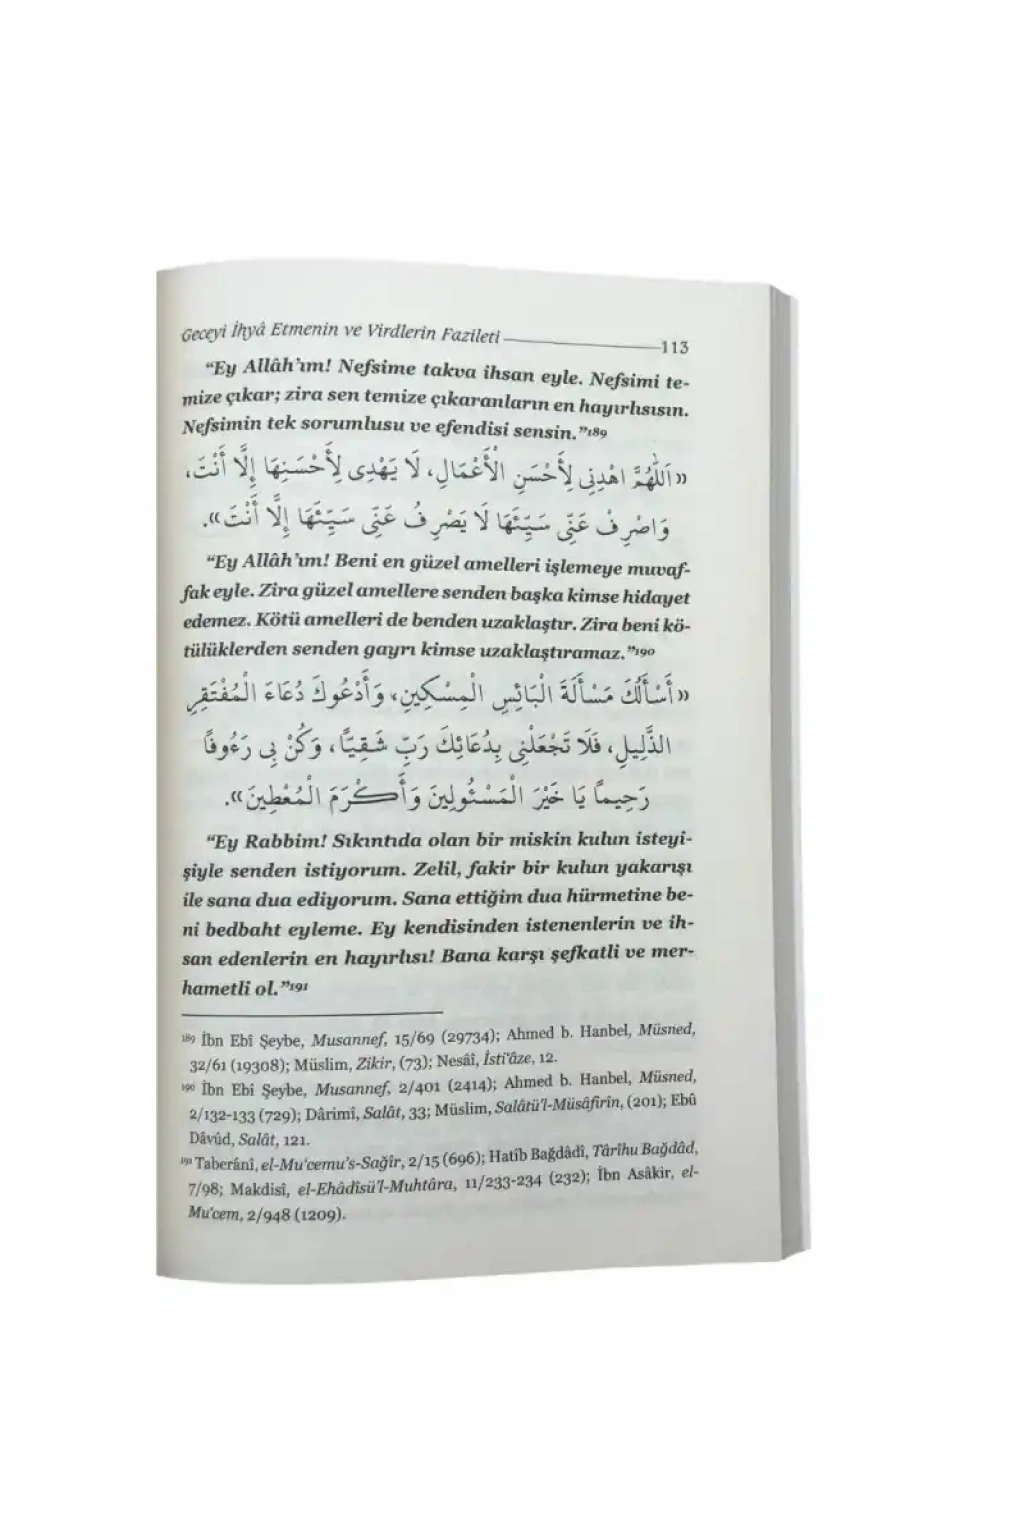 Geceyi İhyâ Etmenin ve Virdlerin Fazileti 113
“Ey Allâh’ım! Nefsime takva ihsan eyle. Nefsimi te-
mize çıkar; zira sen temize çıkaranların en hayırlısısın.
Nefsimin tek sorumlusu ve efendisi sensin.”¹⁸⁹
«اَللّٰهُمَّ اهْدِنِي لِأَحْسَنِ الْأَعْمَالِ، لَا يَهْدِى لِأَحْسَنِهَا إِلَّا أَنْتَ،
وَاصْرِفْ عَنِّي سَيِّئَهَا لَا يَصْرِفُ عَنِّي سَيِّئَهَا إِلَّا أَنْتَ».
“Ey Allâh’ım! Beni en güzel amelleri işlemeye muvaf-
fak eyle. Zira güzel amellere senden başka kimse hidayet
edemez. Kötü amelleri de benden uzaklaştır. Zira beni kö-
tülüklerden senden gayrı kimse uzaklaştıramaz.”¹⁹⁰
«أَسْأَلُكَ مَسْأَلَةَ الْبَائِسِ الْمِسْكِينِ، وَأَدْعُوكَ دُعَاءَ الْمُفْتَقِرِ
الذَّلِيلِ، فَلَا تَجْعَلْنِي بِدُعَائِكَ رَبِّ شَقِيًّا، وَكُنْ بِي رَءُوفًا
رَحِيمًا يَا خَيْرَ الْمَسْئُولِينَ وَأَكْرَمَ الْمُعْطِينَ».
“Ey Rabbim! Sıkıntıda olan bir miskin kulun isteyi-
şiyle senden istiyorum. Zelil, fakir bir kulun yakarışı
ile sana dua ediyorum. Sana ettiğim dua hürmetine be-
ni bedbaht eyleme. Ey kendisinden istenenlerin ve ih-
san edenlerin en hayırlısı! Bana karşı şefkatli ve mer-
hametli ol.”¹⁹¹
¹⁸⁹ İbn Ebî Şeybe, Musannef, 15/69 (29734); Ahmed b. Hanbel, Müsned,
32/61 (19308); Müslim, Zikir, (73); Nesâî, İsti'âze, 12.
¹⁹⁰ İbn Ebî Şeybe, Musannef, 2/401 (2414); Ahmed b. Hanbel, Müsned,
2/132-133 (729); Dârimî, Salât, 33; Müslim, Salâtü'l-Müsâfirîn, (201); Ebû
Dâvûd, Salât, 121.
¹⁹¹ Taberânî, el-Mu'cemu's-Sağîr, 2/15 (696); Hatîb Bağdâdî, Târîhu Bağdâd,
7/98; Makdisî, el-Ehâdîsü'l-Muhtâra, 11/233-234 (232); İbn Asâkir, el-
Mu'cem, 2/948 (1209).